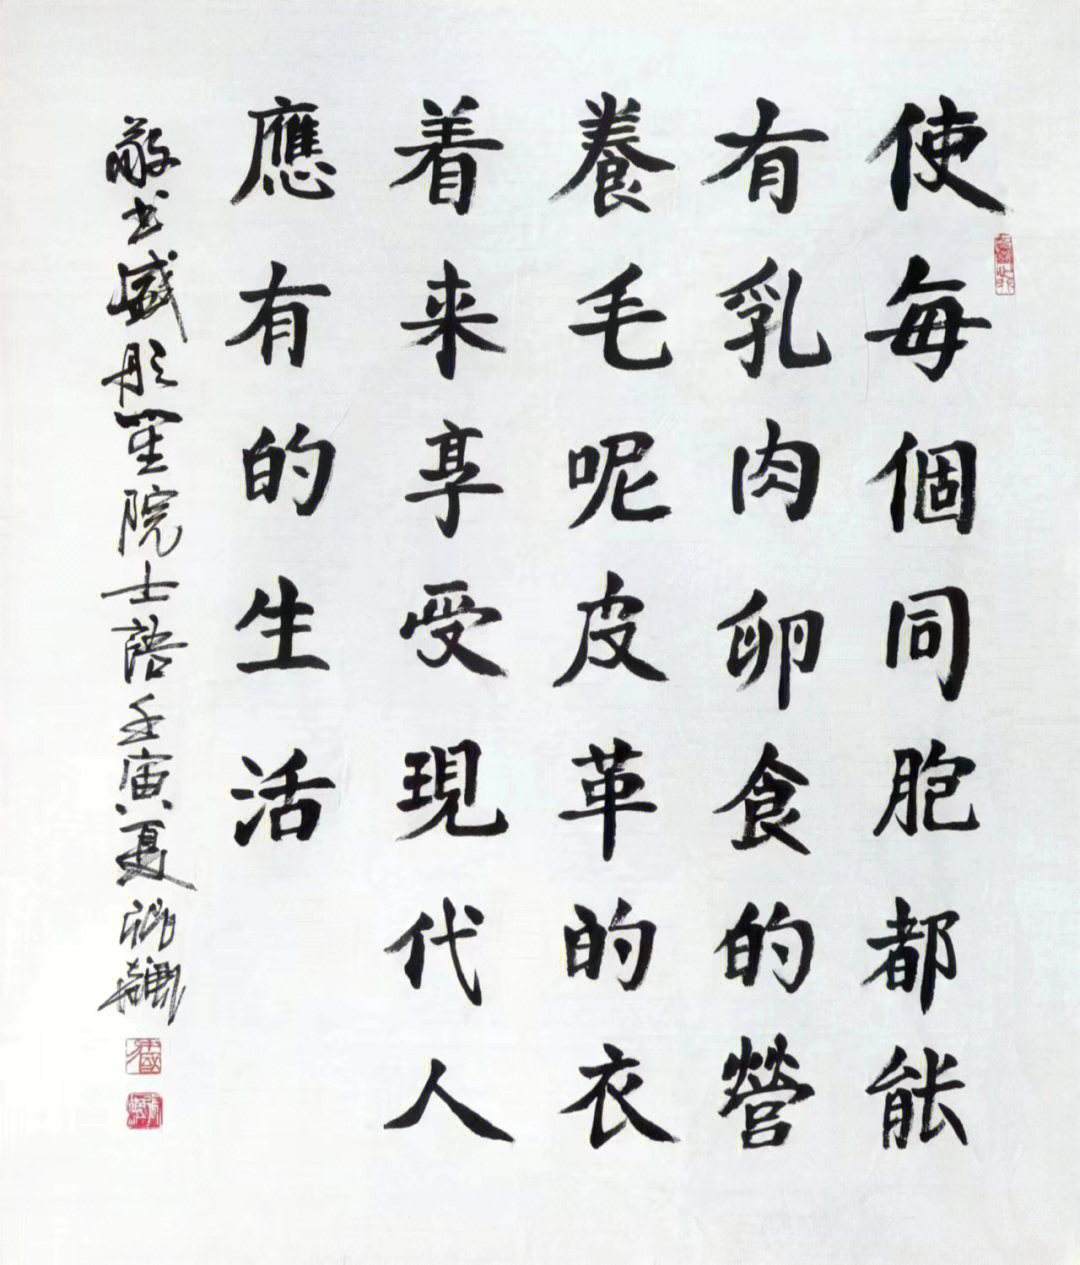 使每個同胞都能
有乳肉卵食的營
養毛呢皮革的衣
着来享受現代人
應有的生活
敬书盛彤笙院士語壬寅夏